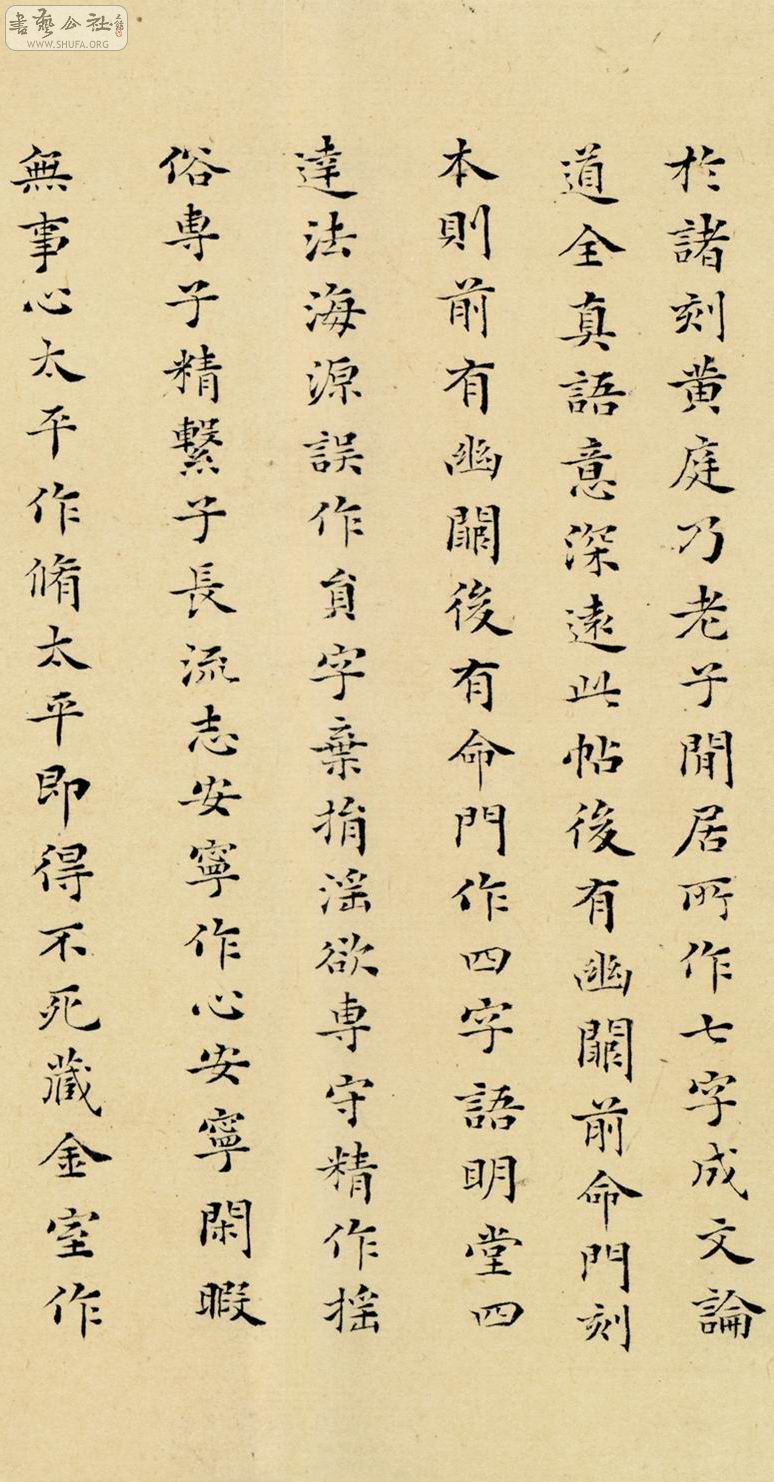 於諸刻黄庭乃老子閒居所作七字成文論
道全真語意深遠此帖後有幽闕前命門刻
本則前有幽闕後有命門作四字語明堂四
達法海源誤作負字棄捐滛欲専守精作摇
俗専子精繫子長流志安寧作心安寧閑暇
無事心太平作脩太平即得不死藏金室作
書藝公社
WWW.SHUFA.ORG